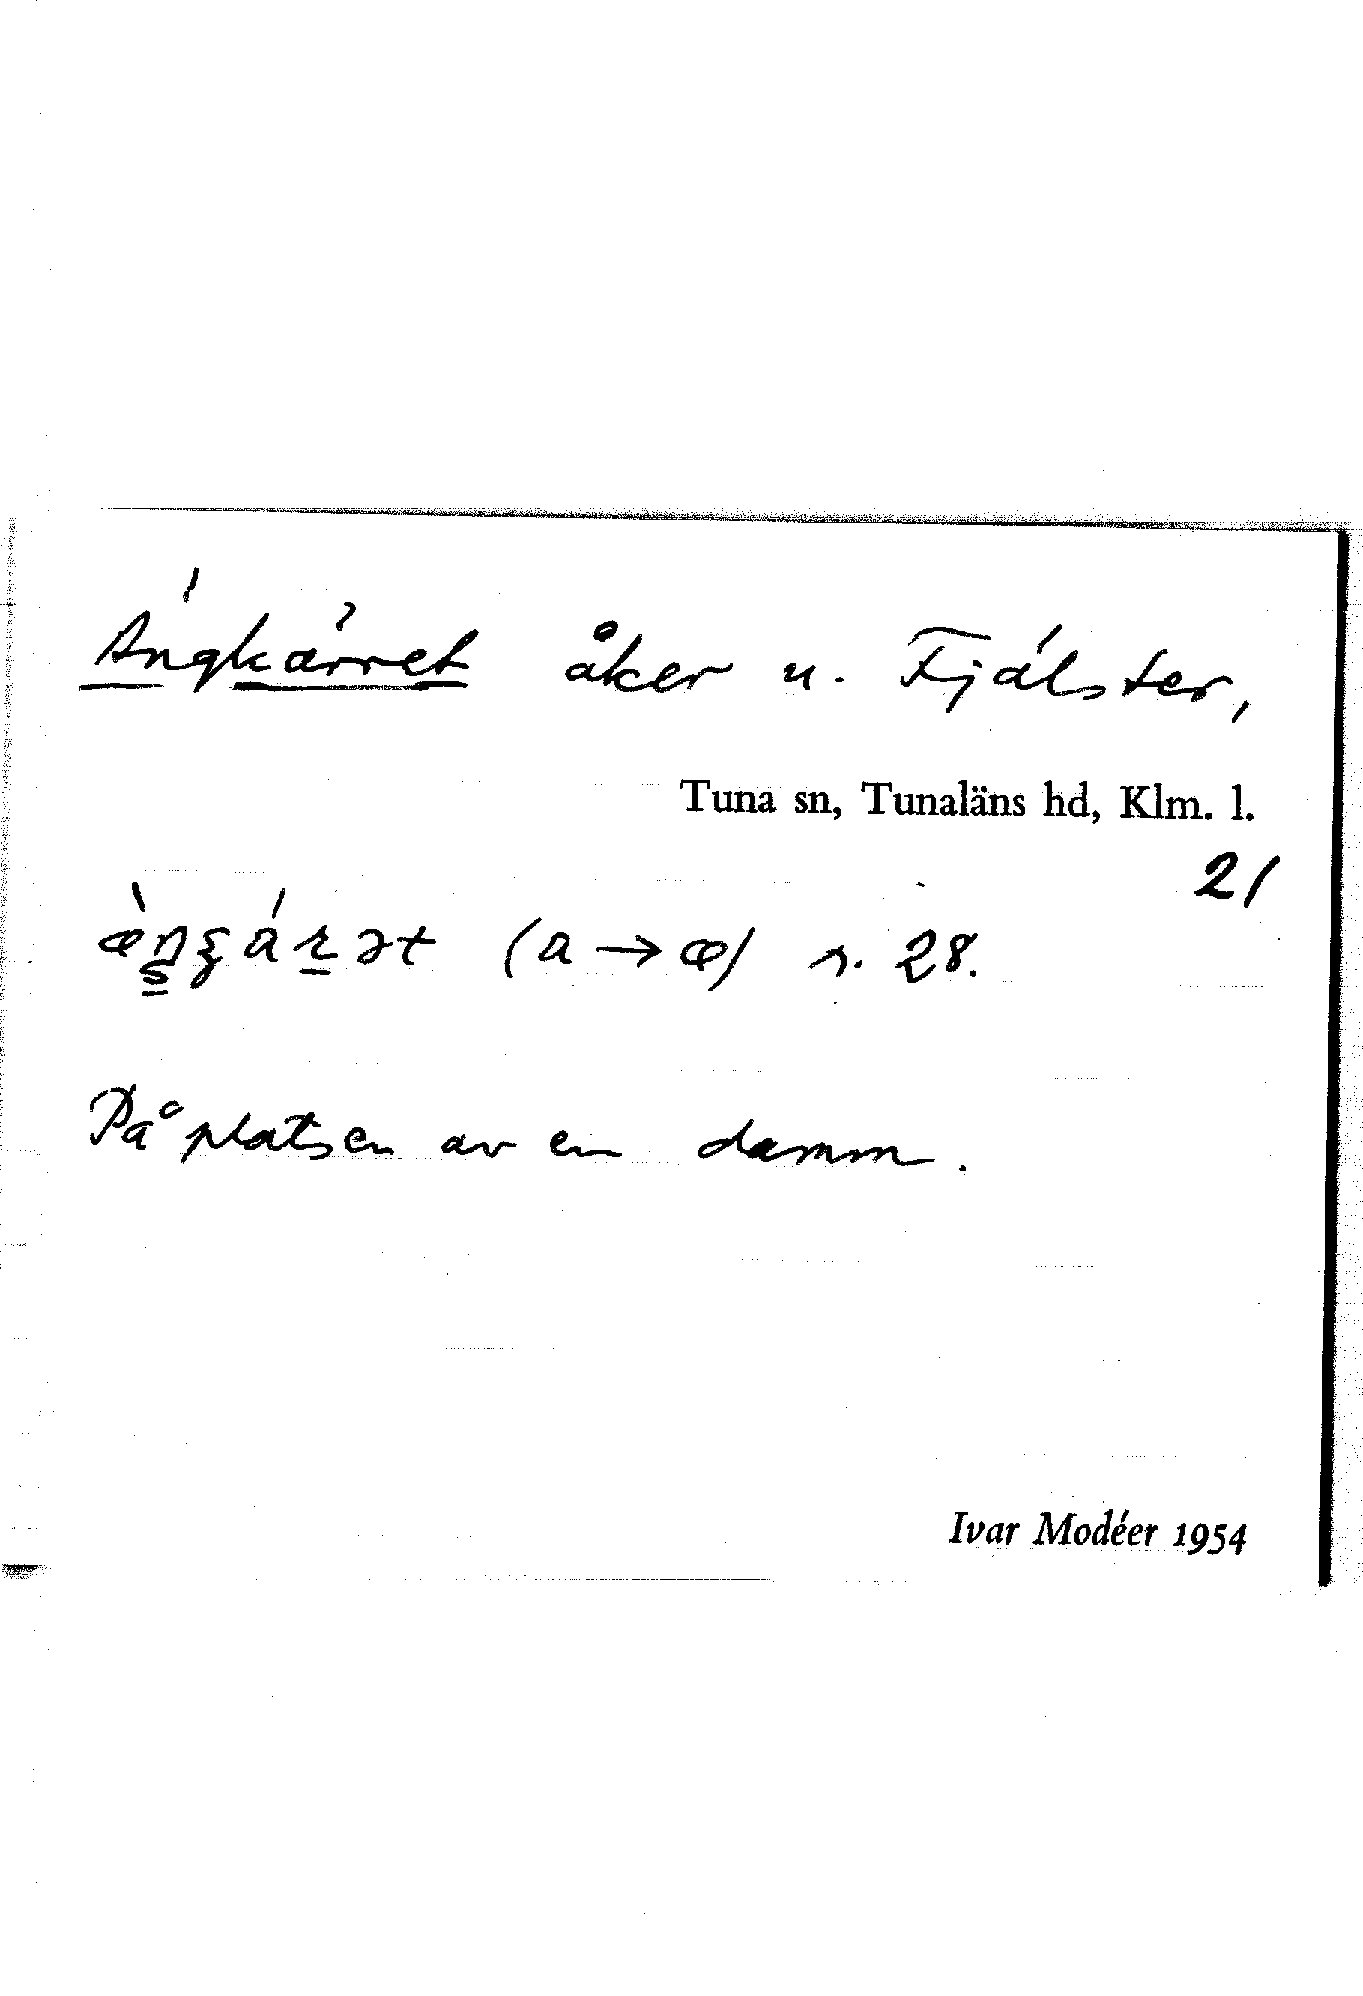 Ängkärret åker u. Fjälster,
Tuna sn, Tunaläns hd, Klm. l.
21
(a → æ) s. 28.
På platsen av en damm.
Ivar Modéer 1954